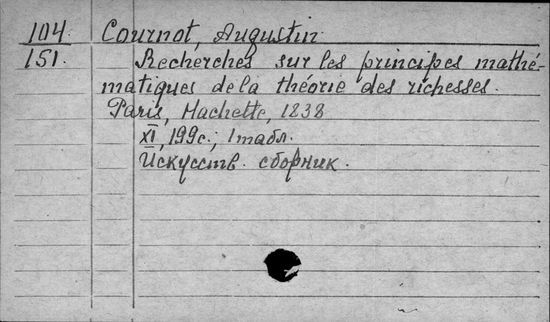 104 Cournot, Augustin
151. Recherches sur les principes mathé-
matiques de la théorie des richesses.
Paris, Hachette, 1838
XI, 199 с., 1 табл.
Искусств. сборник.